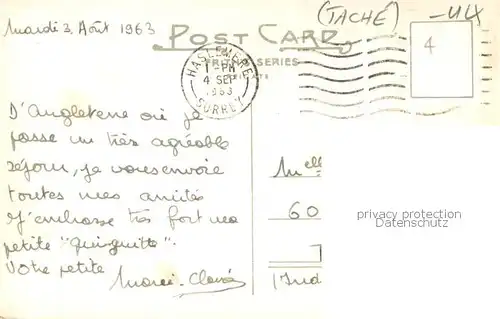 Mardi 3 Août 1963
(TACHÉ)
POST CARD
SERIES
HASLEMERE
1 - PM
4 SEP
1963
SURREY
4
D'Angleterre où je
passe un très agréable
séjour, je vous envoie
toutes mes amitiés
J'embrasse très fort ma
petite "
Votre petite
Marie-Claire
Melle
60
privacy protection
Datenschutz